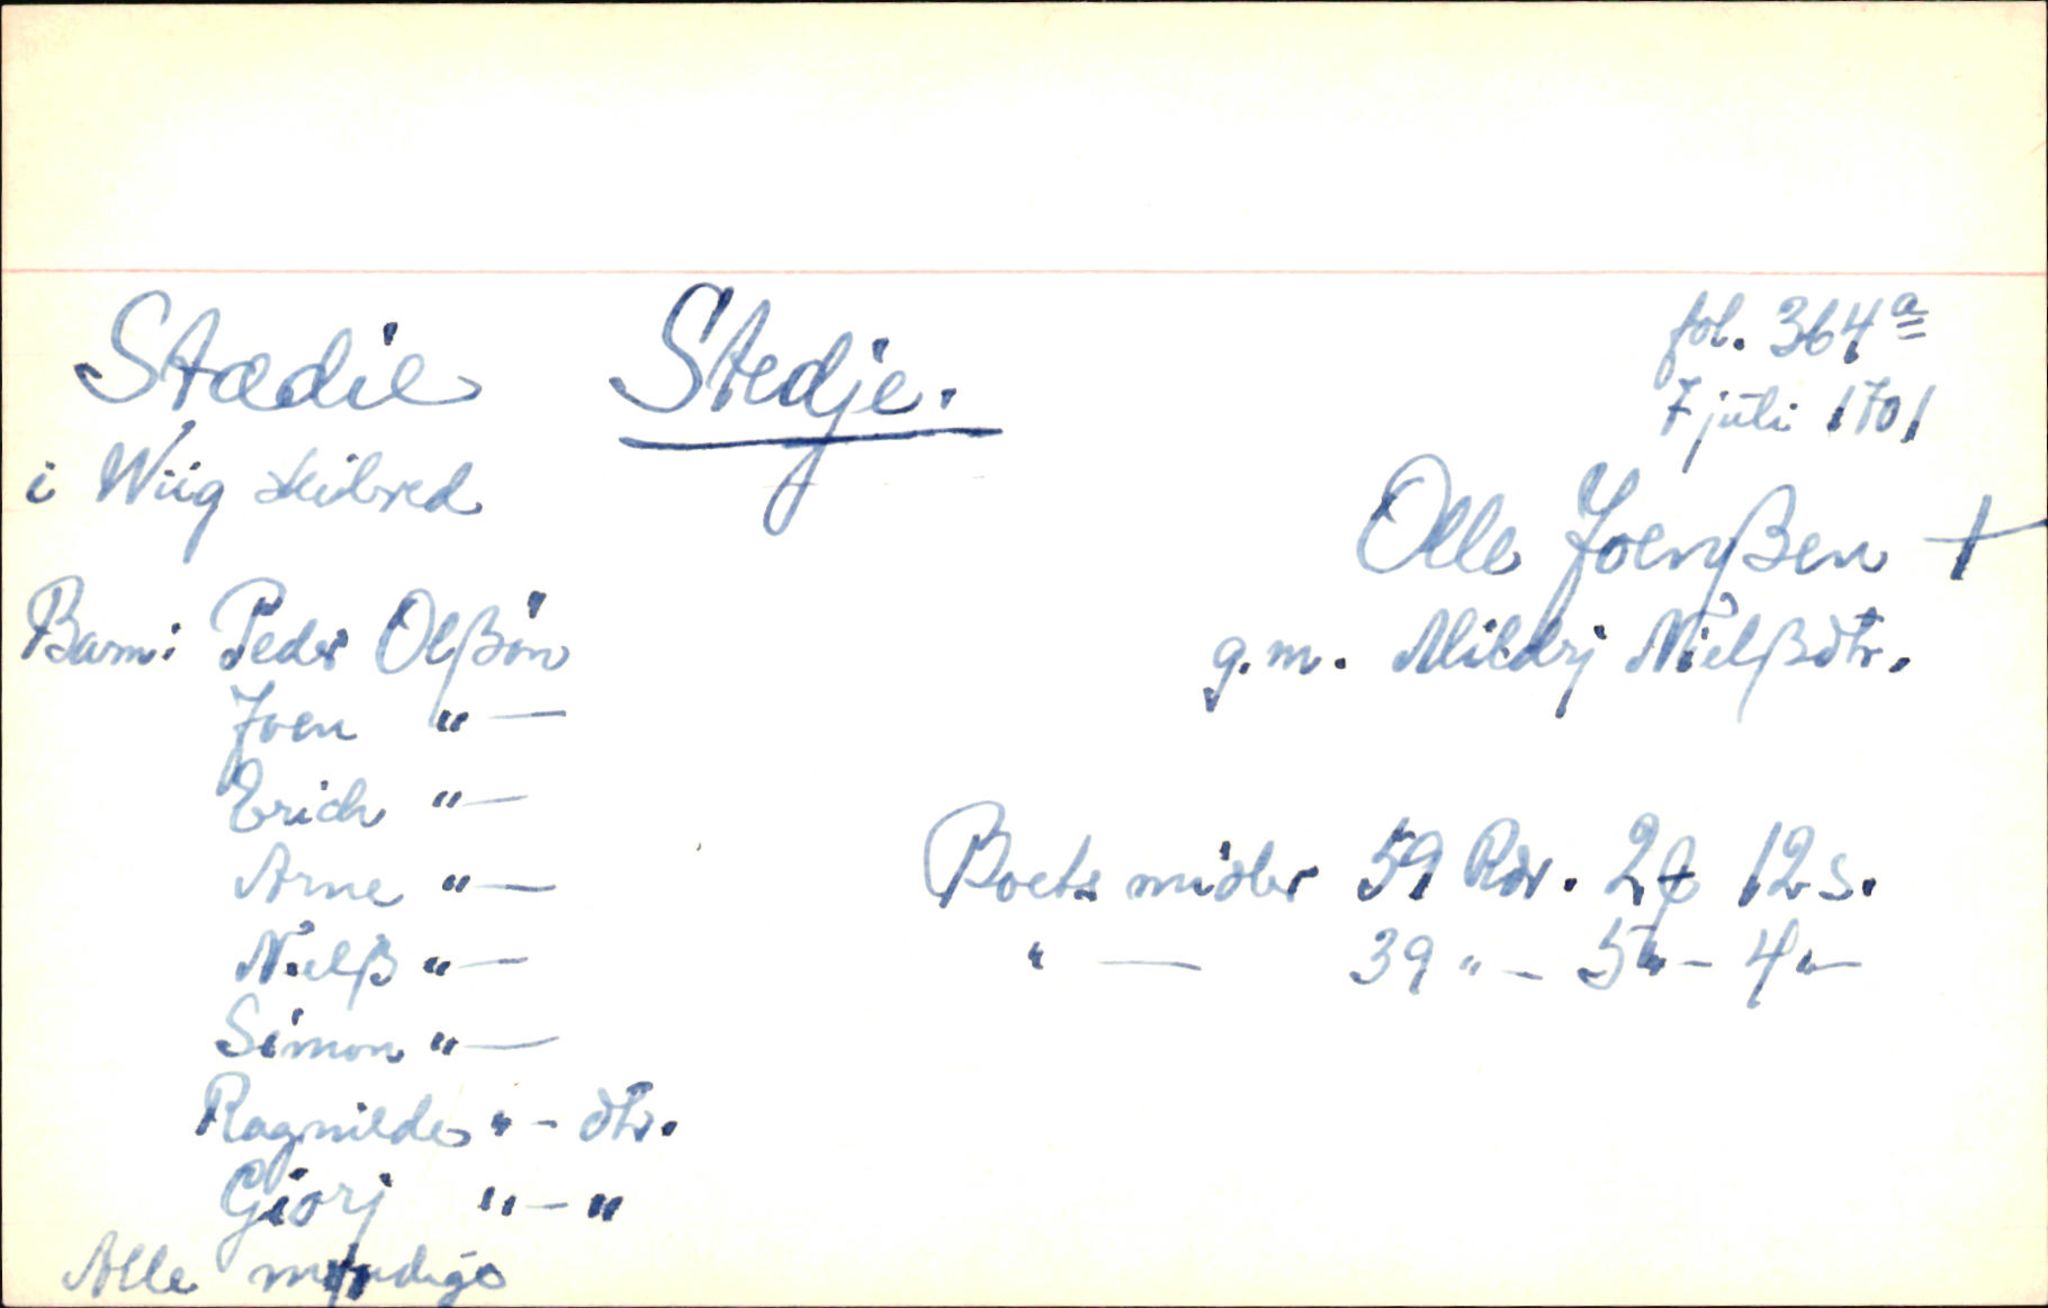 Stædie Stedje. fol. 364a
7 juli 1701
i Wiig skibred
Olle Joenßen +
g.m. Mildrj Nielßdtr.
Barn: Peder Olßøn
Joen " —
Erich " —
Arne " —
Nielß " —
Simon " —
Ragnilde " - dtr.
Giorj " - "
Alle myndige
Boets midler 59 Rdr. 2 ƒ 12 s.
" — 39 " - 5 " - 4 " -